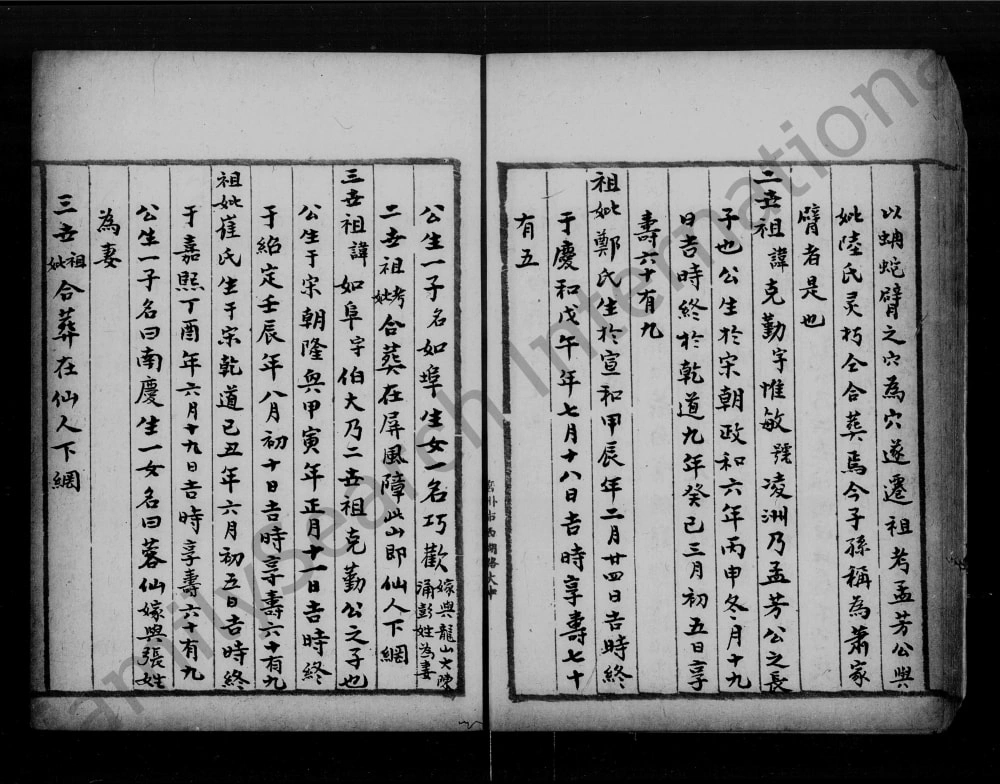 以蚺蛇臂之穴為穴遂遷祖考孟芳公與
妣陸氏灵朽仝合葬焉今子孫稱為蕭家
臂者是也
二世祖諱克勤字惟敏號凌洲乃孟芳公之長
子也公生於宋朝政和六年丙申冬月十九
日吉時終於乾道九年癸巳三月初五日享
壽六十有九
祖妣鄭氏生於宣和甲辰年二月廿四日吉時終
于慶和戊午年七月十八日吉時享壽七十
有五
公生一子名如埠生女一名巧歡嫁與龍山大陳
涌彭姓為妻
二世祖考妣合葬在屏風障此山即仙人下網
三世祖諱如阜字伯大乃二世祖克勤公之子也
公生于宋朝隆興甲寅年正月十一日吉時終
于紹定壬辰年八月初十日吉時享壽六十有九
祖妣崔氏生于宋乾道己丑年六月初五日吉時終
于嘉熙丁酉年六月十九日吉時享壽六十有九
公生一子名曰南慶生一女名曰蓉仙嫁與張姓
為妻
三世祖妣合葬在仙人下網
FamilySearch International